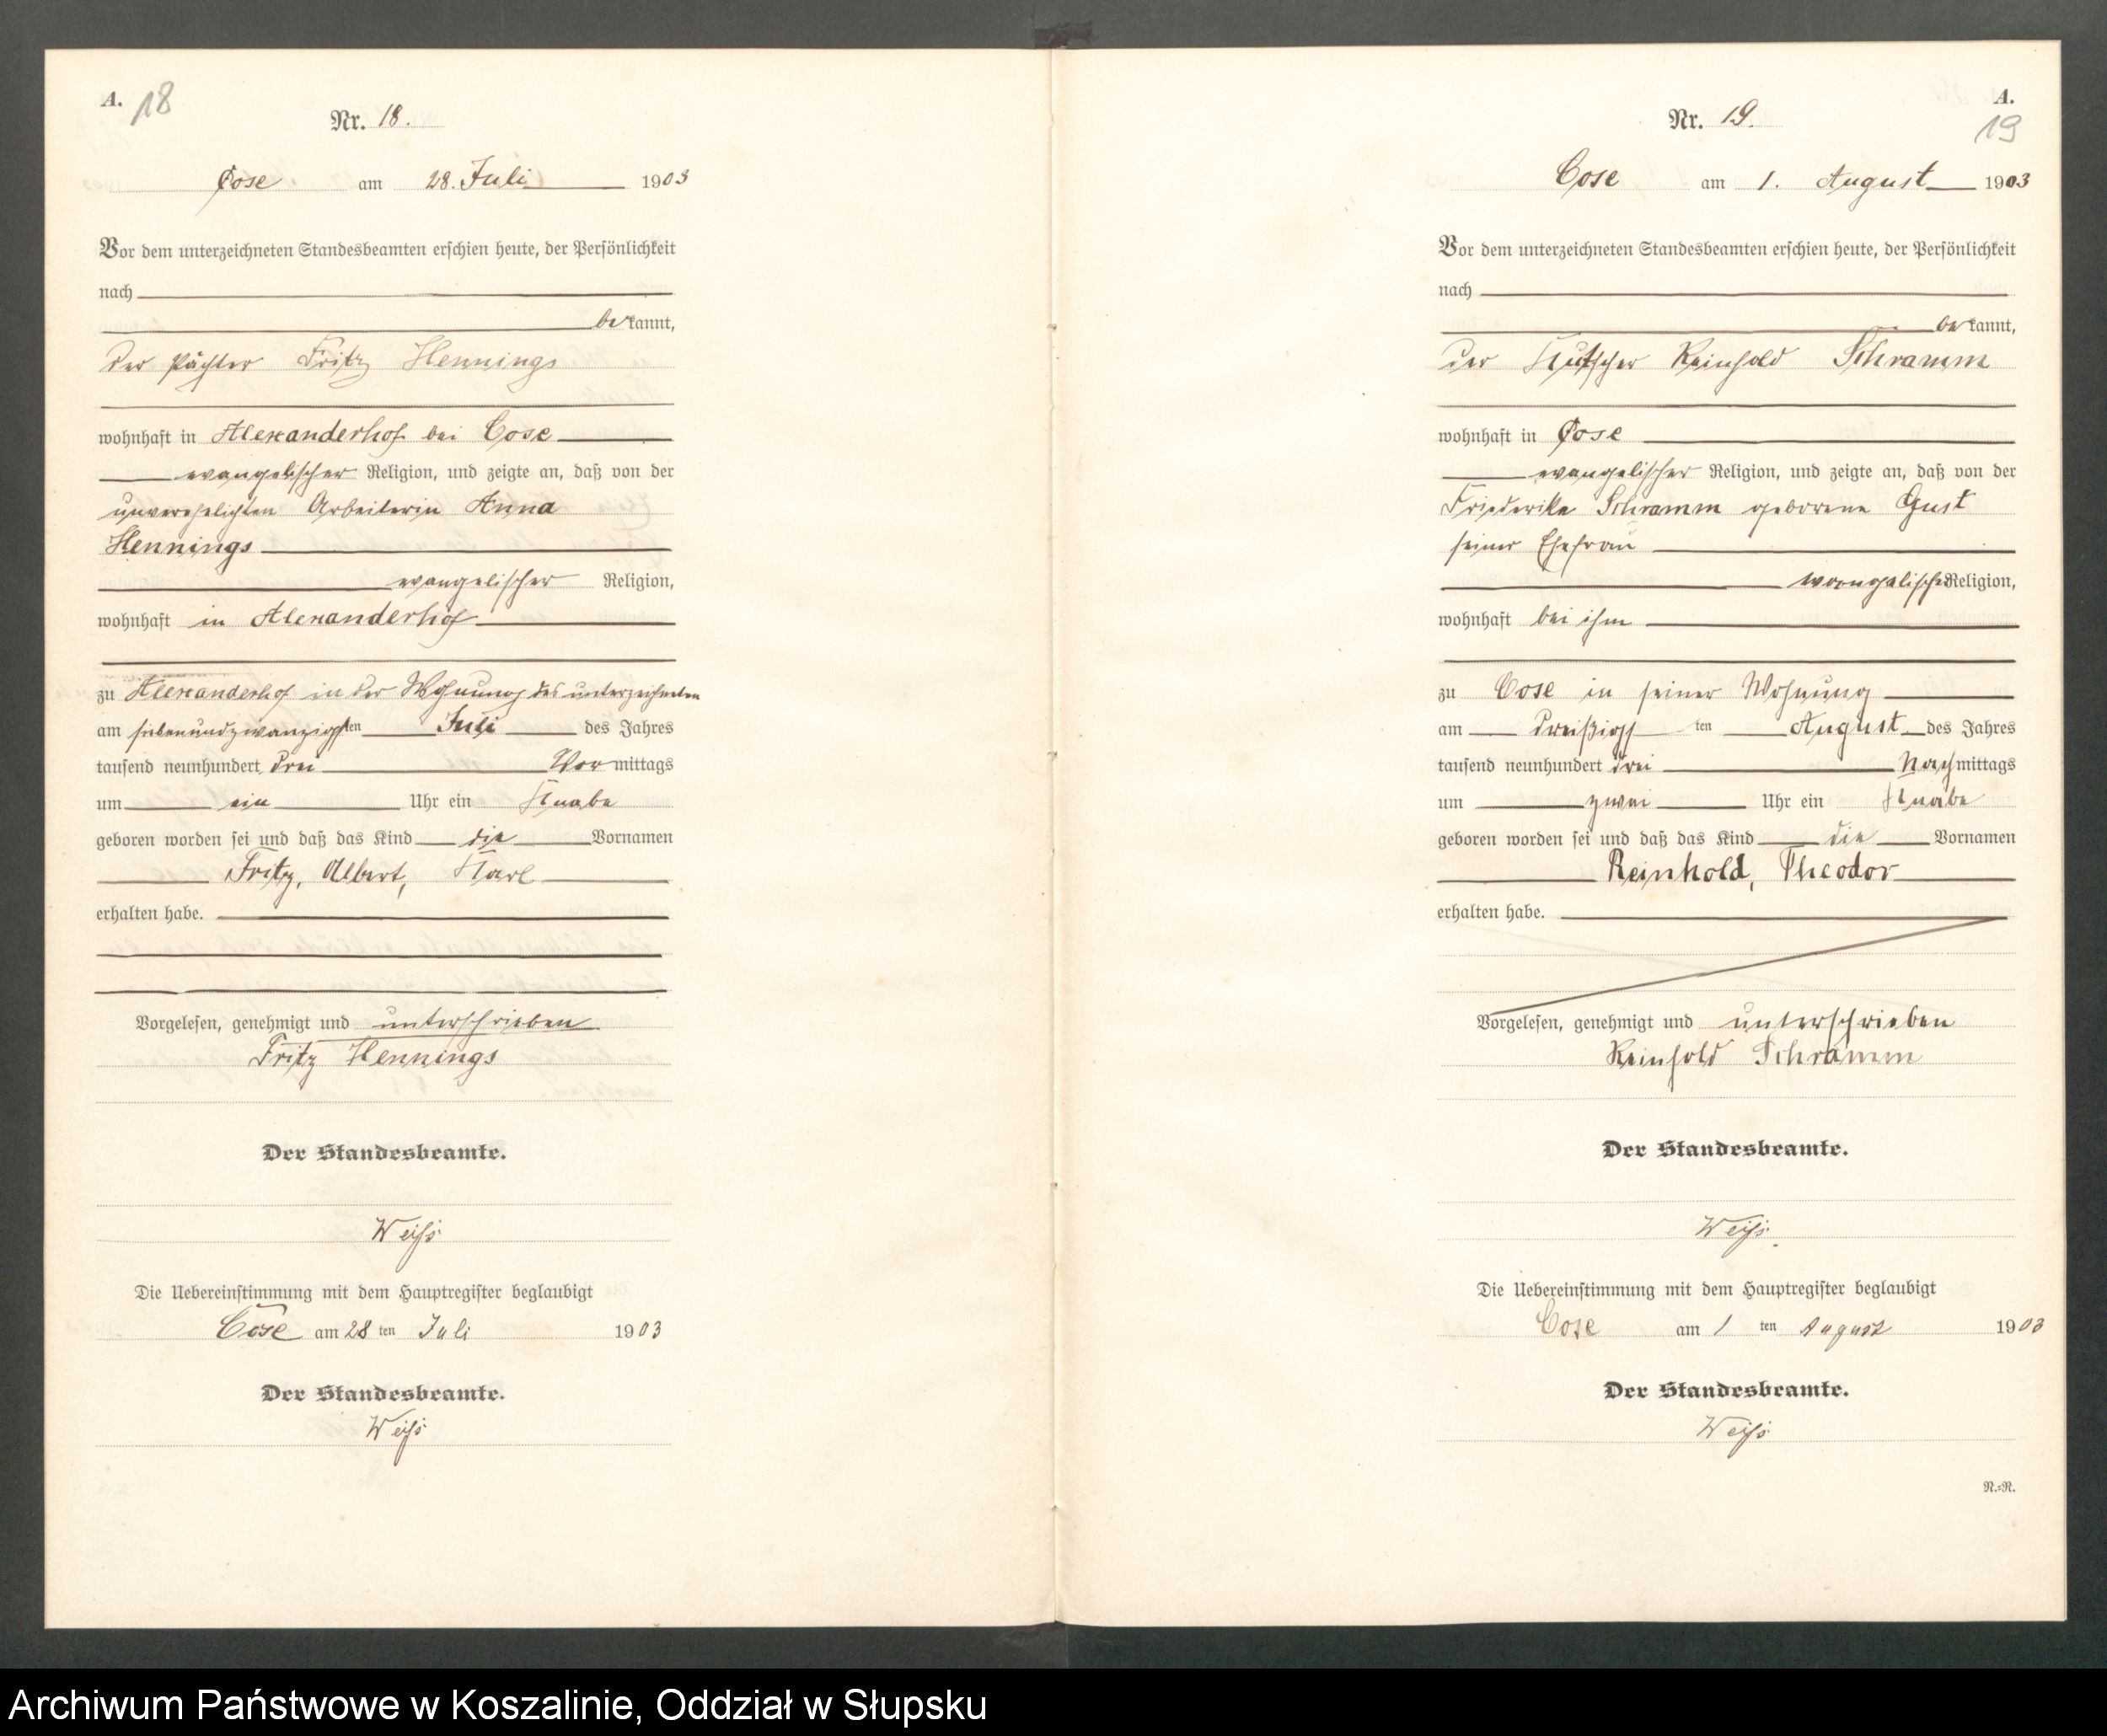 A. 18
Nr. 18.
Cose am 28. Juli 1903
Vor dem unterzeichneten Standesbeamten erschien heute, der Persönlichkeit
nach
bekannt,
der Pächter Fritz Hennings
wohnhaft in Alexanderhof bei Cose
evangelischer Religion, und zeigte an, daß von der
unverehelichten Arbeiterin Anna
Hennings
evangelischer Religion,
wohnhaft in Alexanderhof
zu Alexanderhof in der Wohnung des unterzeichneten
am siebenundzwanzigsten Juli des Jahres
tausend neunhundert drei Vormittags
um ein Uhr ein Knabe
geboren worden sei und daß das Kind die Vornamen
Fritz, Albert, Karl
erhalten habe.
Vorgelesen, genehmigt und unterschrieben
Fritz Hennings
Der Standesbeamte.
Weiß
Die Uebereinstimmung mit dem Hauptregister beglaubigt
Cose am 28 ten Juli 1903
Der Standesbeamte.
Weiß
A.
19
Nr. 19.
Cose am 1. August 1903
Vor dem unterzeichneten Standesbeamten erschien heute, der Persönlichkeit
nach
bekannt,
der Kutscher Reinhold Schramm
wohnhaft in Cose
evangelischer Religion, und zeigte an, daß von der
Friederike Schramm geborene Gust
seiner Ehefrau
evangelischer Religion,
wohnhaft bei ihm
zu Cose in seiner Wohnung
am dreißigsten August des Jahres
tausend neunhundert drei Nachmittags
um zwei Uhr ein Knabe
geboren worden sei und daß das Kind die Vornamen
Reinhold, Theodor
erhalten habe.
Vorgelesen, genehmigt und unterschrieben
Reinhold Schramm
Der Standesbeamte.
Weiß.
Die Uebereinstimmung mit dem Hauptregister beglaubigt
Cose am 1 ten August 1903
Der Standesbeamte.
Weiß
R.=R.
Archiwum Państwowe w Koszalinie, Oddział w Słupsku